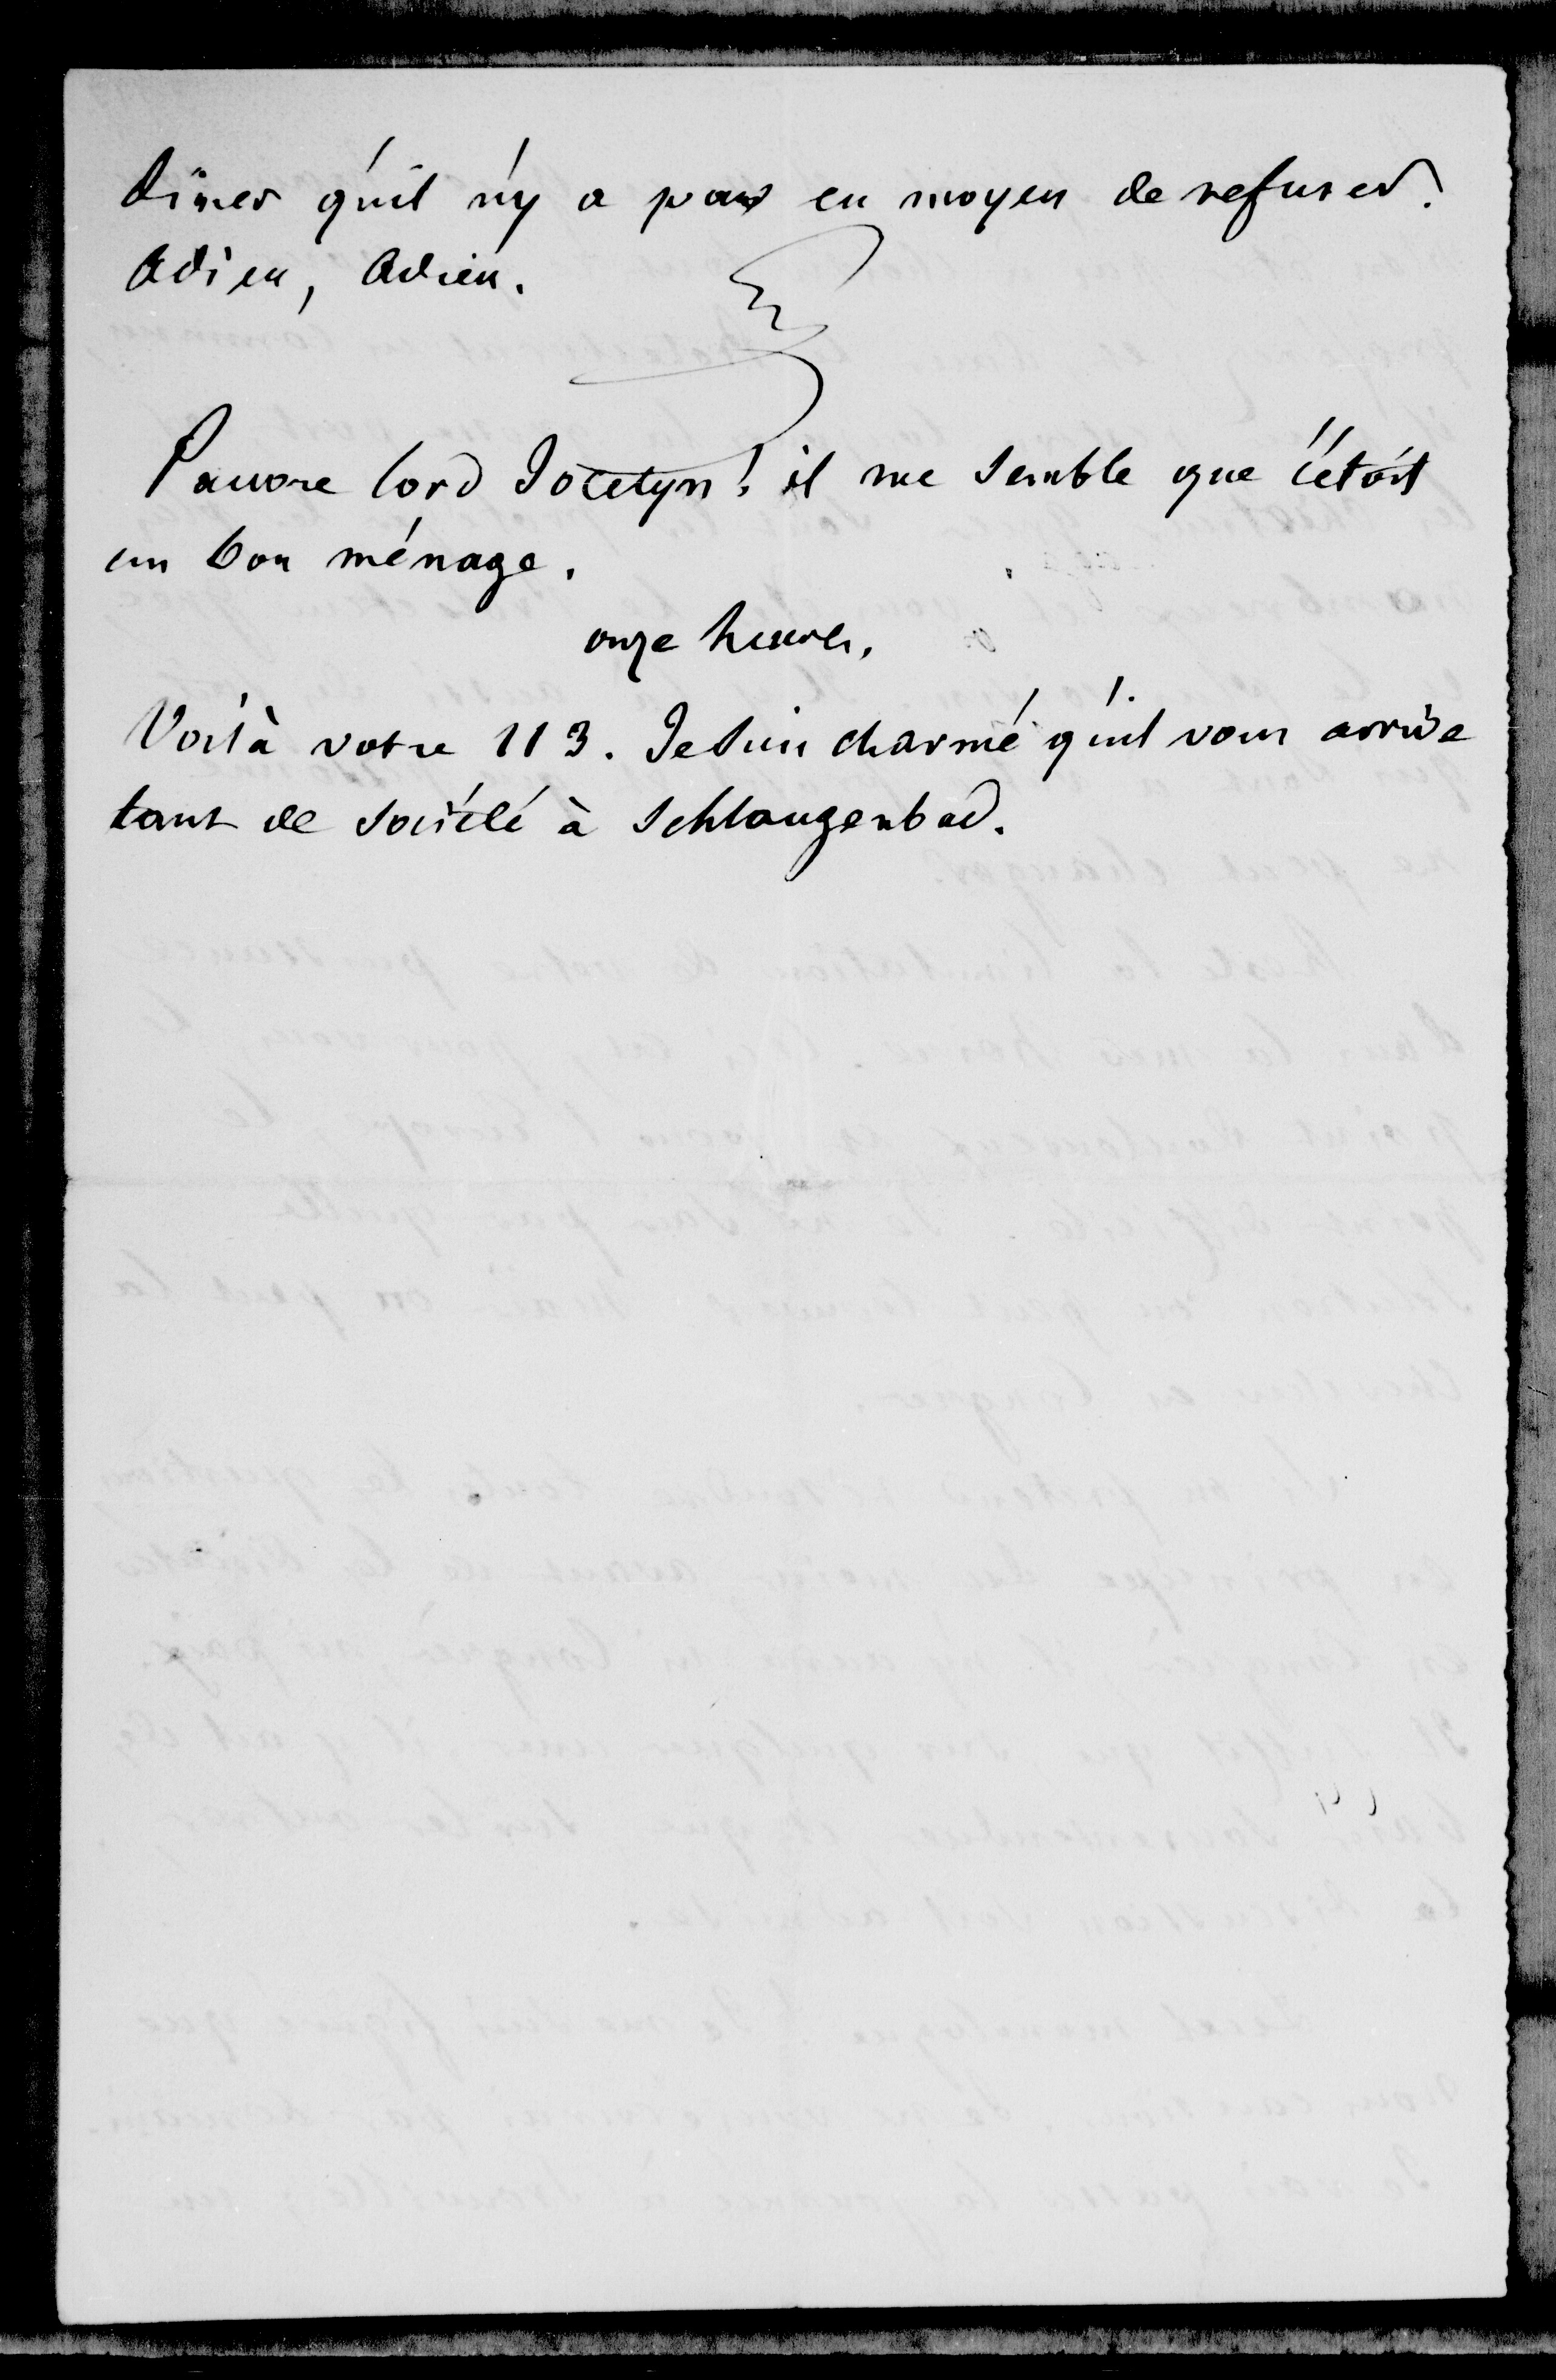 dîner qu'il n'y a pas eu moyen de refuser.
Adieu, Adieu.
Pauvre lord Jocelyn! il me semble que c'étoit
un bon ménage.
onze heures.
Voilà votre 113. Je suis charmé qu'il vous arrive
tant de société à Schlangenbad.